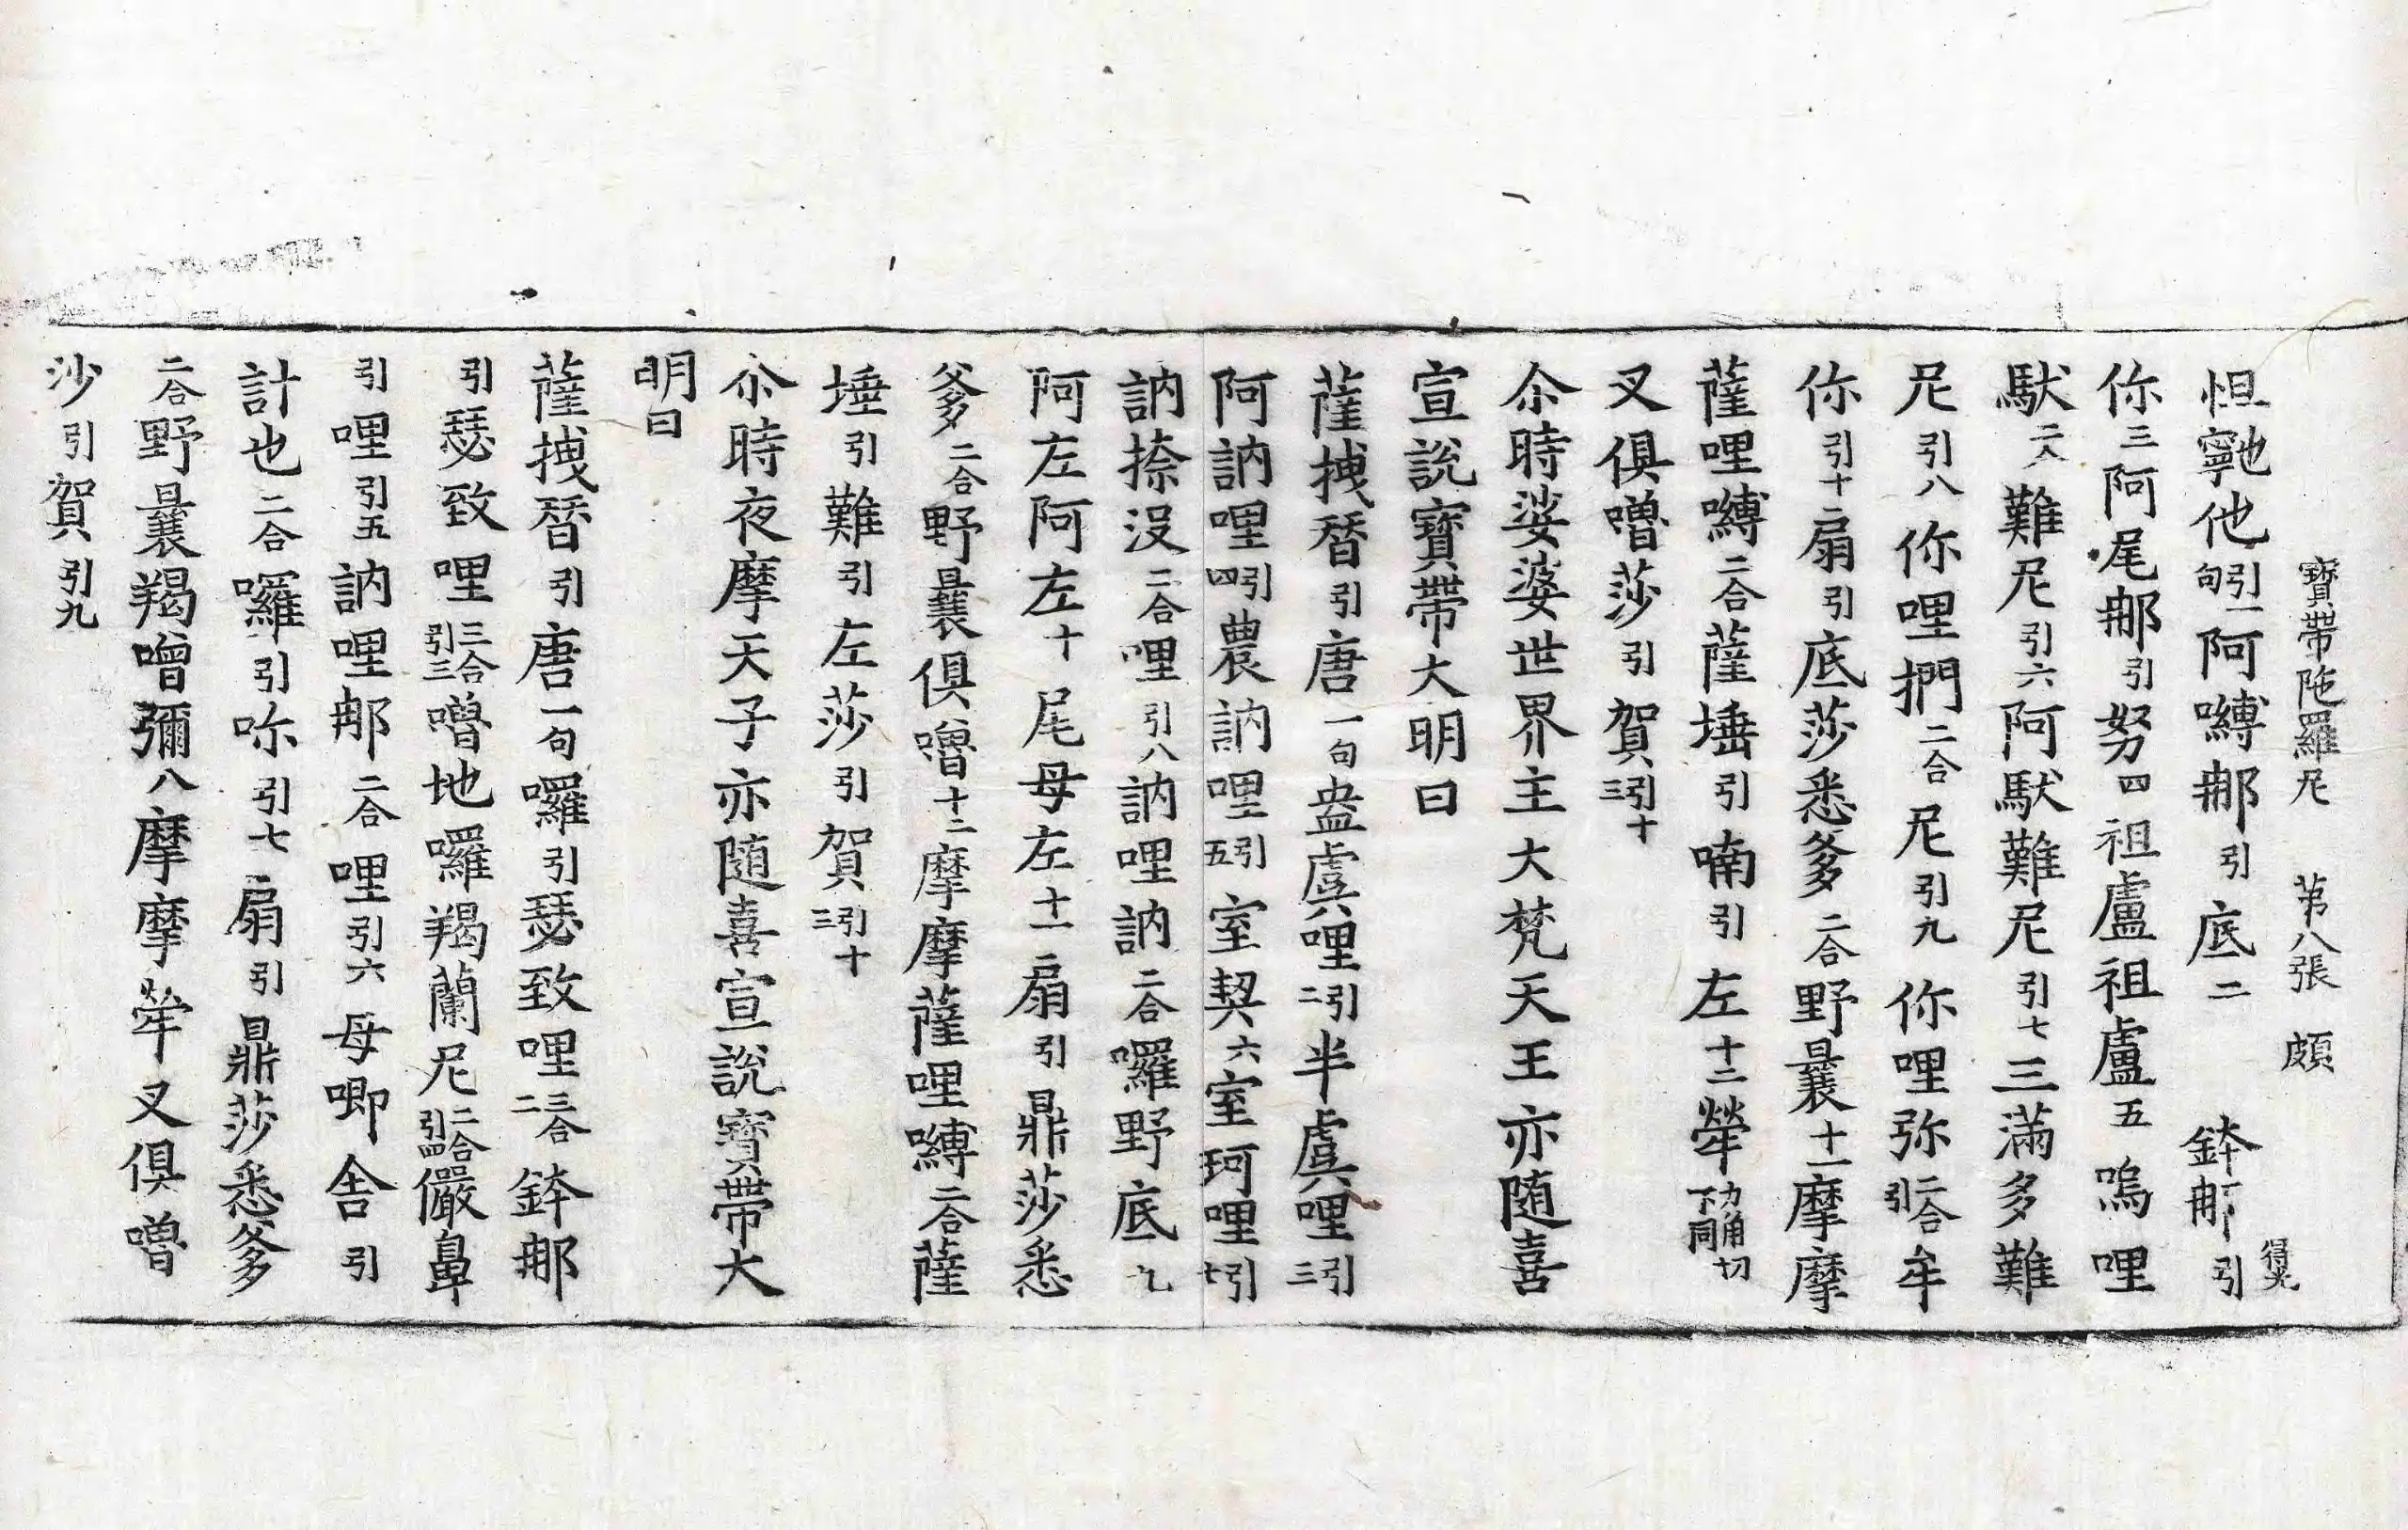 寶帶陁羅尼　苐八張　頗
得光
怛寧也他引一句阿嚩郍引底二　鉢郍引
你三阿尾郍引努四祖盧祖盧五嗚哩
䭾二入難尼引六阿䭾難尼引七三滿多難
尼引八你哩捫二合尼引九你哩弥二合引牟
你引十扇引底莎悉爹二合野曩十一摩摩
薩哩嚩二合薩埵引喃引左十二犖力角切下同
叉俱嚕莎引賀引十三
尒時娑婆世界主大梵天王亦随喜
宣說寶帶大明曰
薩拽替引唐一句盎虞哩引二半虞哩引三
阿訥哩引四農訥哩引五室契六室珂哩引七
訥捺没二合哩引八訥哩訥二合囉野底九
阿左阿左十尾母左十一扇引鼎莎悉
爹二合野曩俱嚕十二摩摩薩哩嚩二合薩
埵引難引左莎引賀引十三
尒時夜摩天子亦随喜宣說寶帶大
明曰
薩拽替引唐一句囉引瑟致哩三合二鉢郍
引瑟致哩三合引三嚕地囉羯蘭尼二合引四儼鼻
引哩引五訥哩郍二合哩引六母唧舍引
計也二合囉引㖿引七扇引鼎莎悉爹
二合野曩羯嚕彌八摩摩犖叉俱嚕
沙引賀引九